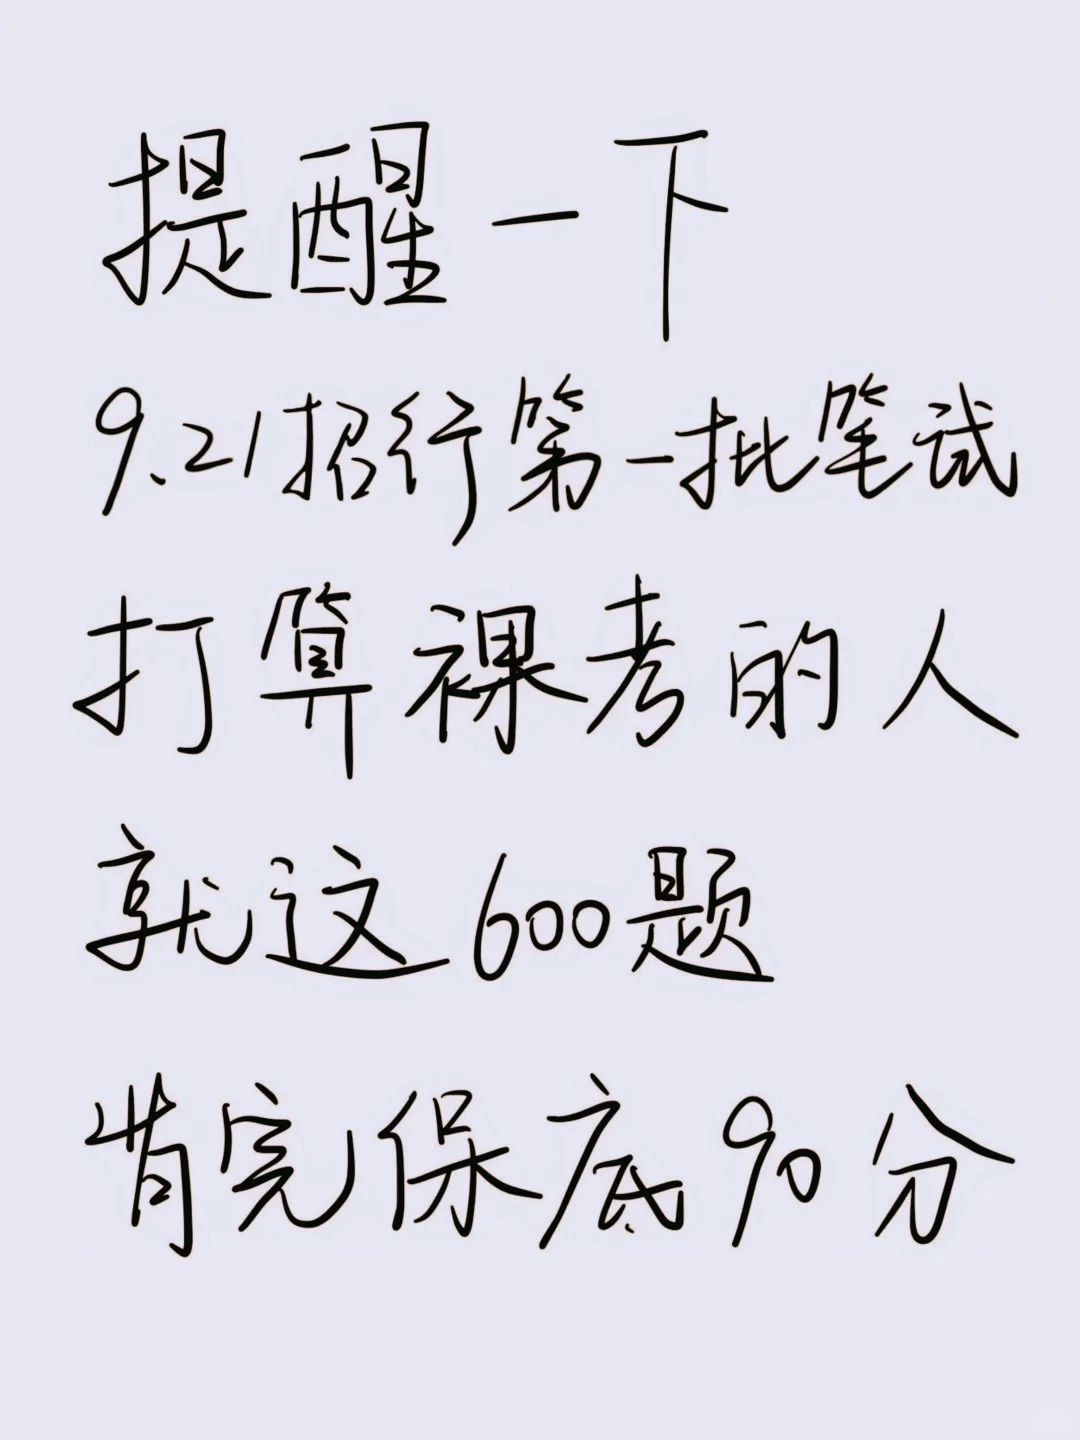 提醒一下
9.21招行第一批笔试
打算裸考的人
就这600题
背完保底90分